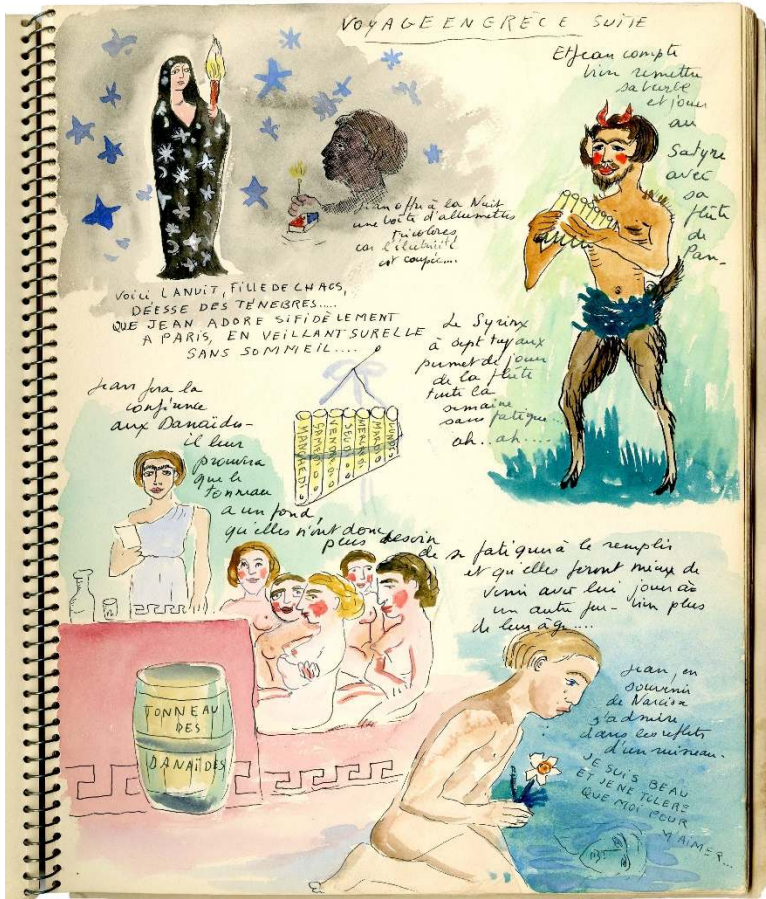 VOYAGE EN GRÈCE SUITE
Et Jean compte
bien remettre
sa barbe
et jouer
au
Satyre
avec
sa
flûte
de
Pan_
Jean offre à la Nuit
une boîte d'allumettes
tricolores
car l'électricité
est coupée....
VOICI LA NUIT, FILLE DE CHAOS,
DÉESSE DES TÉNÈBRES.....
QUE JEAN ADORE SI FIDÈLEMENT
A PARIS, EN VEILLANT SUR ELLE
SANS SOMMEIL....
Le Syrinx
à sept tuyaux
permet de jouer
de la flûte
toute la
semaine
sans fatigue...
ah..ah....
MANCHEDI
SAMEDI
VENDREDI
JEUDI
MERCREDI
MARDI
LUNDI
Jean fera la
confiance
aux Danaïdes_
il leur
prouvera
que le
tonneau
a un fond
qu'elles n'ont donc
plus besoin
de se fatiguer à le remplir
et qu'elles feront mieux de
venir avec lui jouer à
un autre jeu_ bien plus
de leur âge....
TONNEAU
DES
DANAÏDES
Jean, en
souvenir
de Narcisse
s'admire
dans les reflets
d'un ruisseau_
JE SUIS BEAU
ET JE NE TOLERE
QUE MOI POUR
M'AIMER...